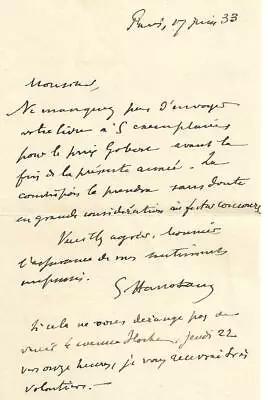 Paris, 17 juin 33
Monsieur,
Ne manquez pas d'envoyer
votre livre à 5 exemplaires
pour le prix Gobert avant la
fin de la présente année. La
commission le prendra sans doute
en grande considération
Veuillez agréer, monsieur
l'assurance de mes sentiments
G Hanotaux
Si cela ne vous dérange pas de
venir 4 avenue Hoche, jeudi 22
vers onze heures, je vous recevrai très
volontiers.